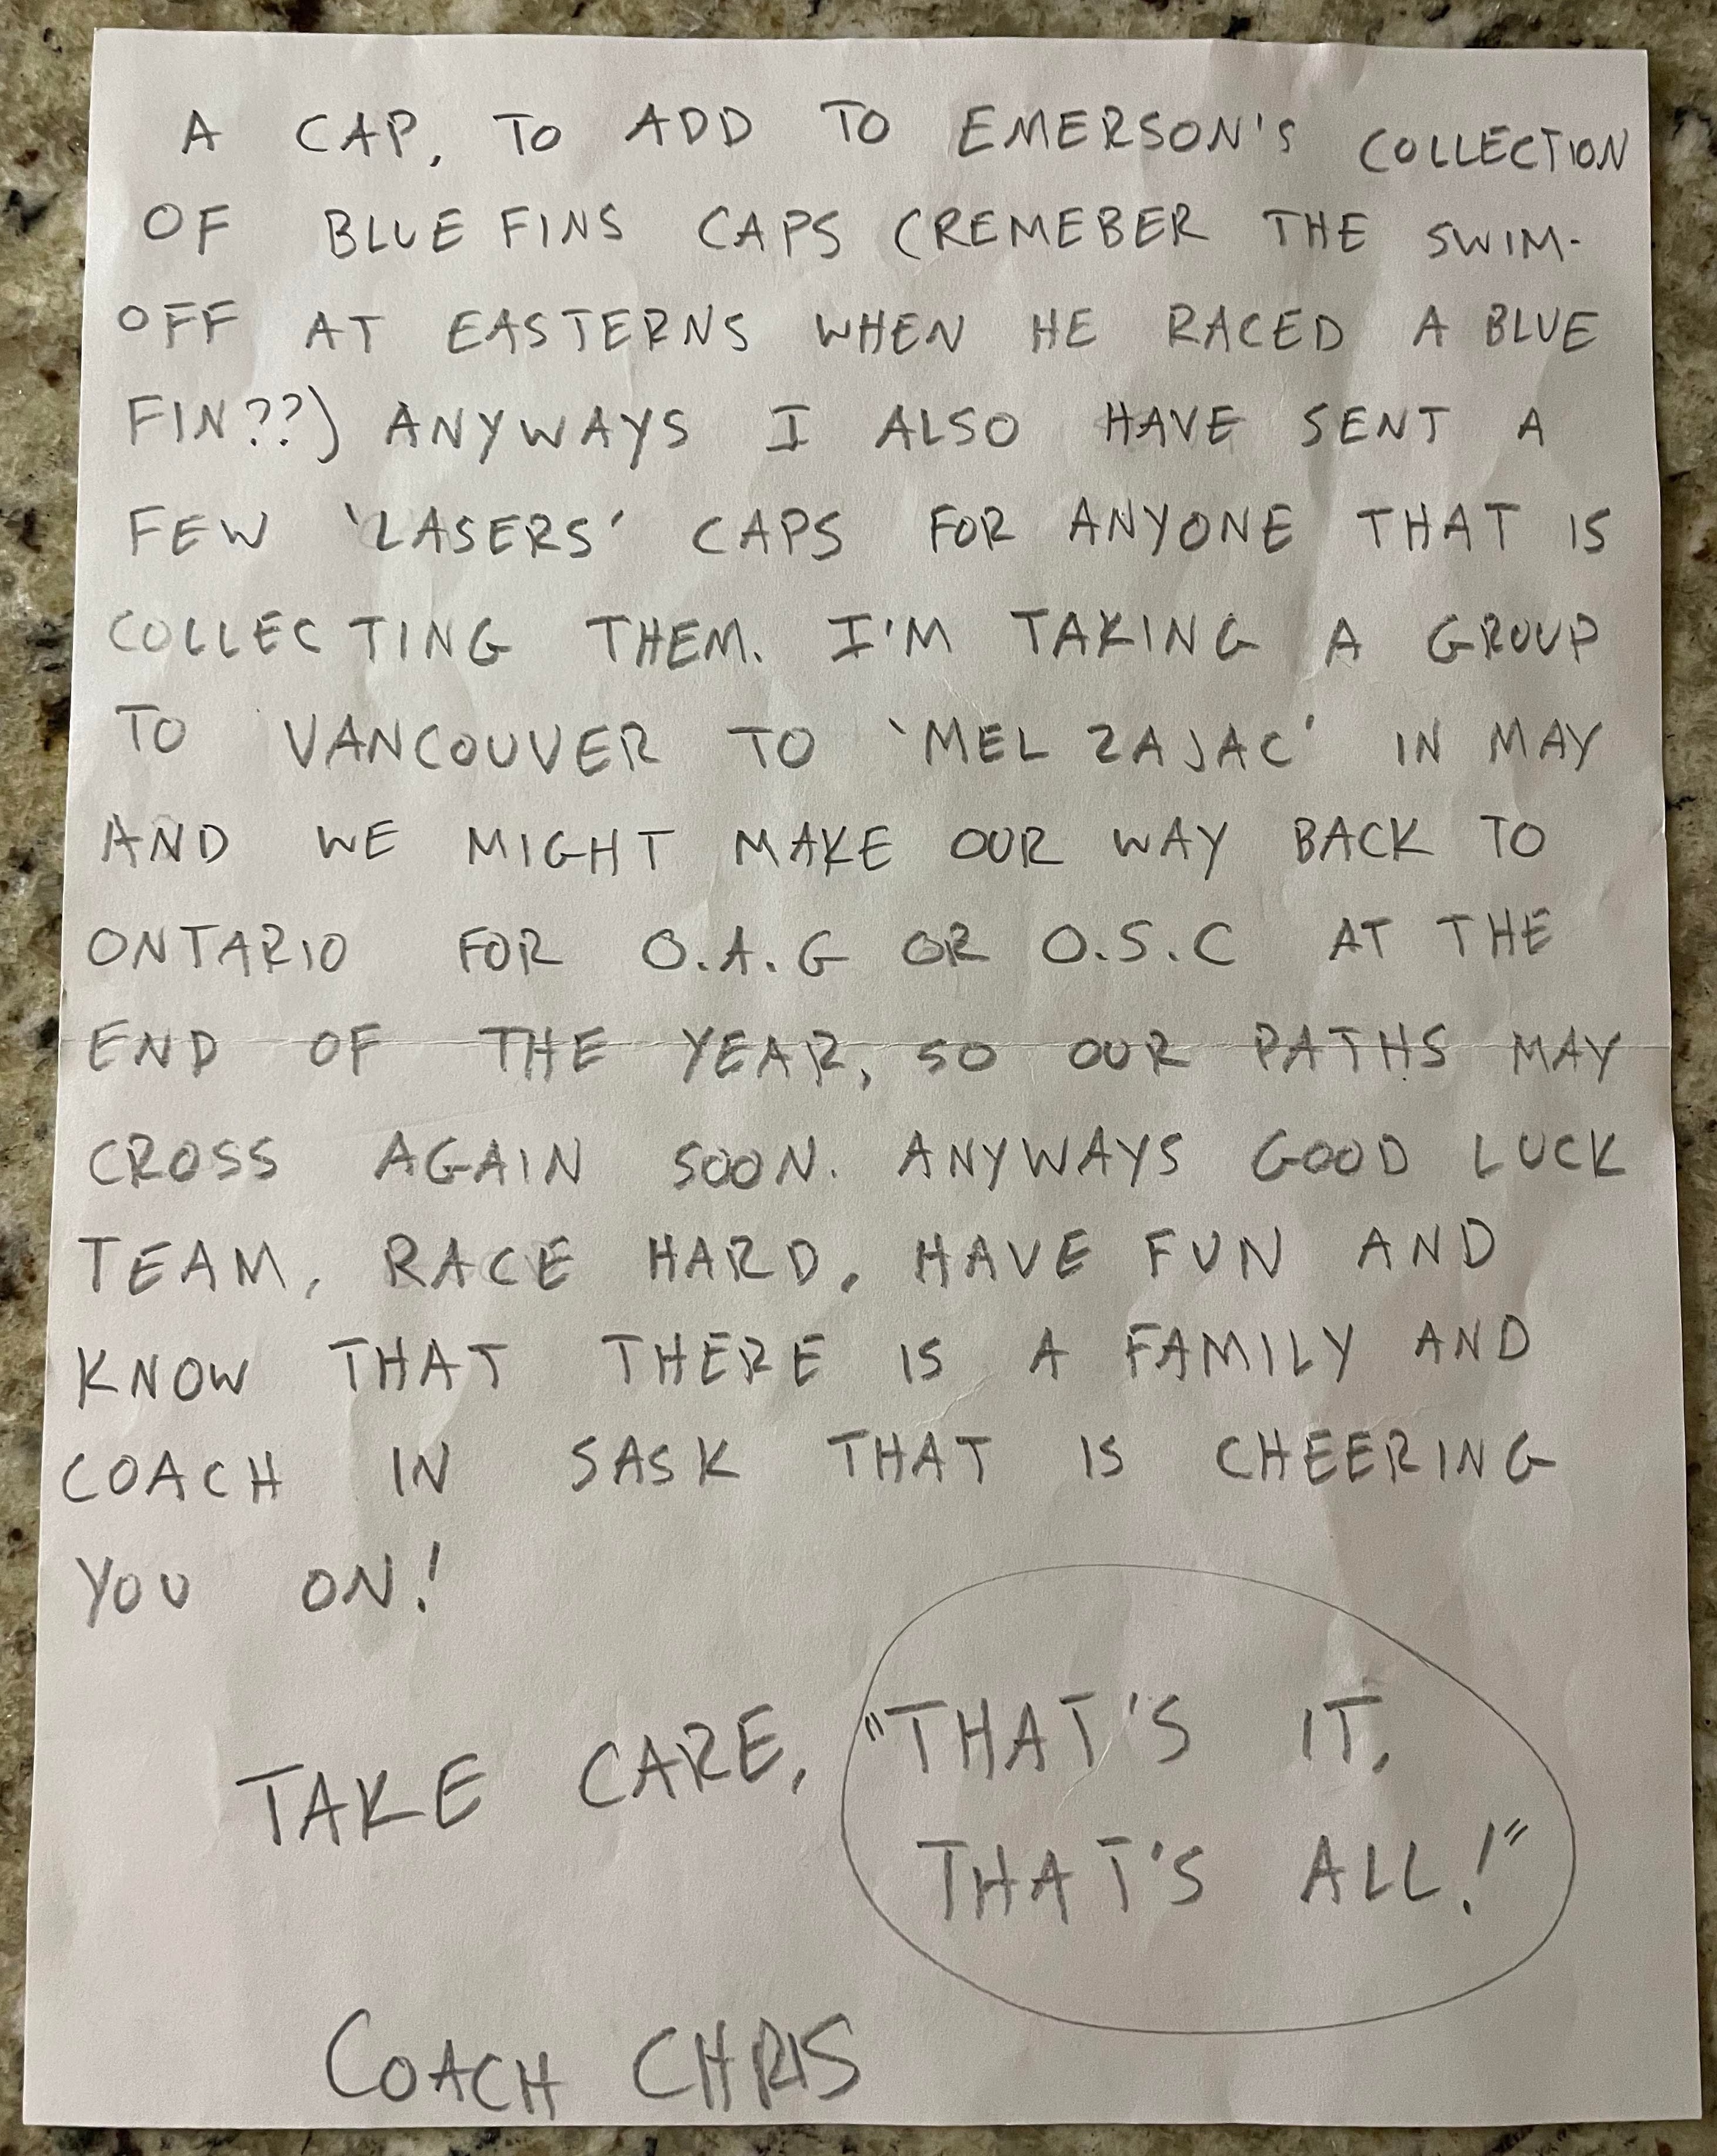 A CAP, TO ADD TO EMERSON'S COLLECTION
OF BLUE FINS CAPS (REMEBER THE SWIM-
OFF AT EASTERNS WHEN HE RACED A BLUE
FIN??) ANYWAYS I ALSO HAVE SENT A
FEW 'LASERS' CAPS FOR ANYONE THAT IS
COLLECTING THEM. I'M TAKING A GROUP
TO VANCOUVER TO 'MEL ZAJAC' IN MAY
AND WE MIGHT MAKE OUR WAY BACK TO
ONTARIO FOR O.A.G OR O.S.C AT THE
END OF THE YEAR, SO OUR PATHS MAY
CROSS AGAIN SOON. ANYWAYS GOOD LUCK
TEAM, RACE HARD, HAVE FUN AND
KNOW THAT THERE IS A FAMILY AND
COACH IN SASK THAT IS CHEERING
YOU ON!
TAKE CARE, "THAT'S IT,
THAT'S ALL!"
COACH CHRIS